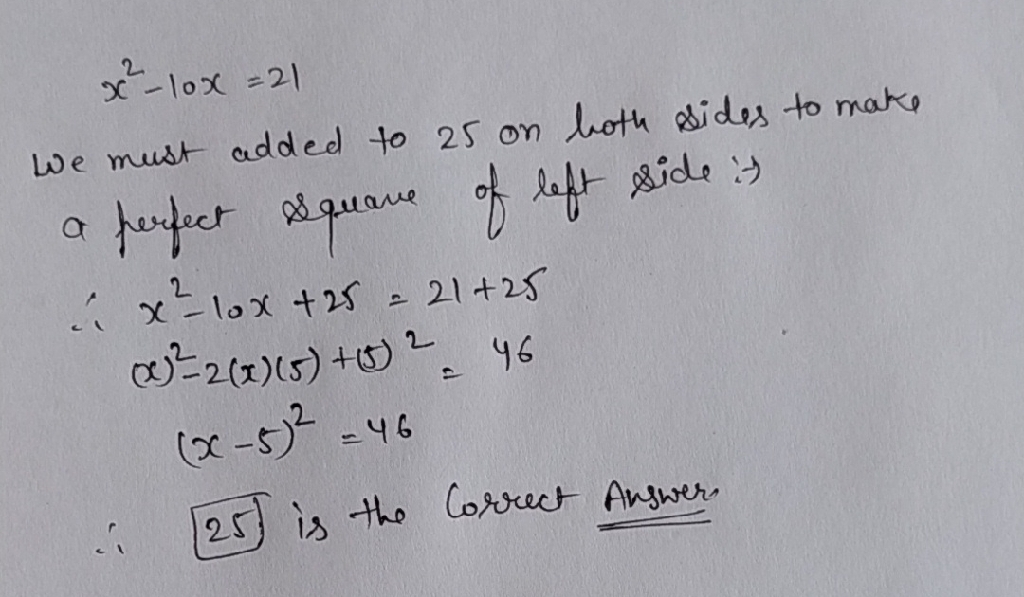 x² - 10x = 21
We must added to 25 on both sides to make
a perfect square of left side :→
∴ x² - 10x + 25 = 21 + 25
(x)² - 2(x)(5) + (5)² = 46
(x - 5)² = 46
∴ 25 is the Correct Answer.